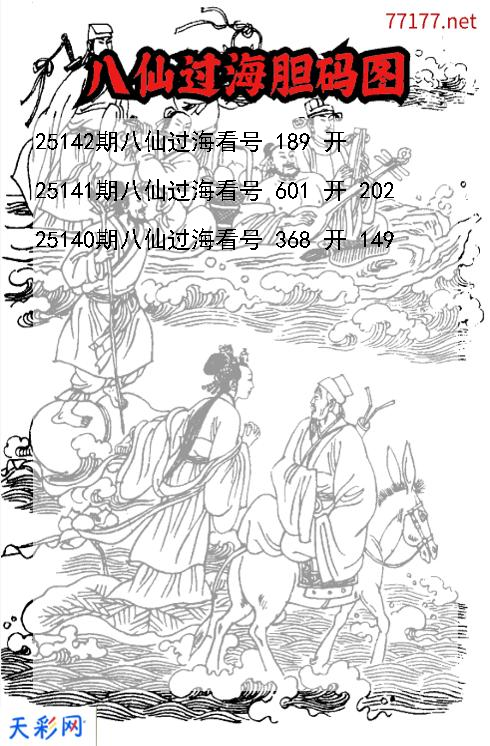 77177.net
八仙过海胆码图
25142期八仙过海看号 189 开
25141期八仙过海看号 601 开 202
25140期八仙过海看号 368 开 149
天彩网